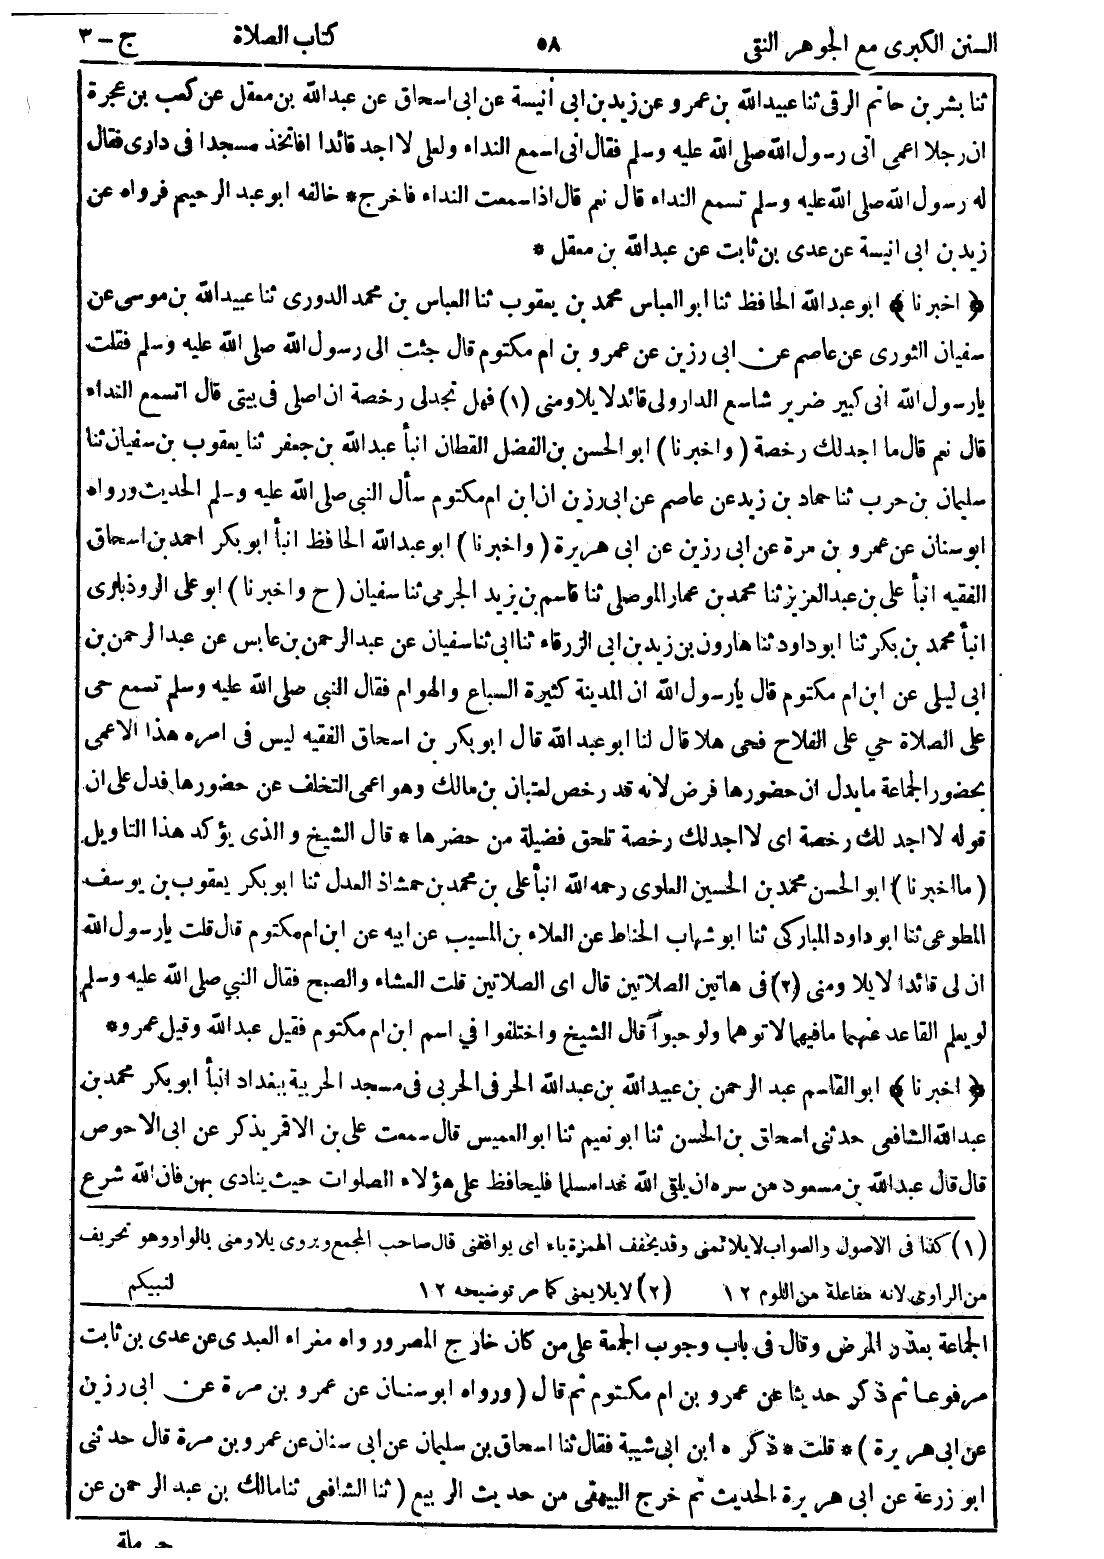 السنن الكبرى مع الجوهر النقى ٥٨ كتاب الصلاة ج - ٣
ثنا بشر بن حاتم الرقى ثنا عبيدالله بن عمرو عن زيد بن ابى أنيسة عن ابى اسحاق عن عبدالله بن معقل عن كعب بن عجرة
ان رجلا اعمى اتى رسول الله صلى الله عليه وسلم فقال انى اسمع النداء ولعلى لا اجد قائدا افاتخذ مسجدا فى دارى فقال
له رسول الله صلى الله عليه وسلم تسمع النداء قال نعم قال اذا سمعت النداء فاخرج * خالفه ابو عبد الرحيم فرواه عن
زيد بن ابى انيسة عن عدى بن ثابت عن عبدالله بن معقل *
﴿ اخبرنا ﴾ ابو عبدالله الحافظ ثنا ابو العباس محمد بن يعقوب ثنا العباس بن محمد الدورى ثنا عبيدالله بن موسى عن
سفيان الثورى عن عاصم عن ابى رزين عن عمرو بن ام مكتوم قال جئت الى رسول الله صلى الله عليه وسلم فقلت
يا رسول الله انى كبير ضرير شاسع الدار ولى قائد لا يلاومنى (١) فهل تجدلى رخصة ان اصلى فى بيتى قال اتسمع النداء
قال نعم قال ما اجد لك رخصة ( واخبرنا ) ابو الحسن بن الفضل القطان انبأ عبدالله بن جعفر ثنا يعقوب بن سفيان ثنا
سليمان بن حرب ثنا حماد بن زيد عن عاصم عن ابى رزين ان ابن ام مكتوم سأل النبى صلى الله عليه وسلم الحديث ورواه
ابو سنان عن عمرو بن مرة عن ابى رزين عن ابى هريرة ( واخبرنا ) ابو عبدالله الحافظ انبأ ابو بكر احمد بن اسحاق
الفقيه انبأ على بن عبد العزيز ثنا محمد بن عمار الموصلى ثنا قاسم بن يزيد الجرمى ثنا سفيان ( ح واخبرنا ) ابو على الروذبارى
انبأ محمد بن بكر ثنا ابو داود ثنا هارون بن زيد بن ابى الزرقاء ثنا ابى ثنا سفيان عن عبد الرحمن بن عابس عن عبد الرحمن بن
ابى ليلى عن ابن ام مكتوم قال يا رسول الله ان المدينة كثيرة السباع والهوام فقال النبى صلى الله عليه وسلم تسمع حى
على الصلاة حي على الفلاح فحى هلا قال لنا ابو عبد الله قال ابو بكر بن اسحاق الفقيه ليس فى امره هذا الاعمى
بحضور الجماعة ما يدل ان حضورها فرض لانه قد رخص لعتبان بن مالك وهو اعمى التخلف عن حضورها فدل على ان
قوله لا اجد لك رخصة اى لا اجد لك رخصة تلحق فضيلة من حضرها * قال الشيخ والذى يؤكد هذا التاويل
( ما اخبرنا ) ابو الحسن محمد بن الحسين العلوى رحمه الله انبأ على بن محمد بن حمشاذ العدل ثنا ابو بكر يعقوب بن يوسف
المطوعى ثنا ابو داود المباركى ثنا ابو شهاب الحناط عن العلاء بن المسيب عن ابيه عن ابن ام مكتوم قال قلت يا رسول الله
ان لى قائدا لا يلاومنى (٢) فى هاتين الصلاتين قال اى الصلاتين قلت العشاء والصبح فقال النبي صلى الله عليه وسلم
لو يعلم القاعد عنهما ما فيهما لاتوهما ولو حبواً قال الشيخ واختلفوا في اسم ابن ام مكتوم فقيل عبدالله وقيل عمرو *
﴿ اخبرنا ﴾ ابو القاسم عبد الرحمن بن عبيدالله بن عبدالله الحرفى الحربى فى مسجد الحربية ببغداد انبأ ابو بكر محمد بن
عبدالله الشافعى حدثنى اسحاق بن الحسن ثنا ابو نعيم ثنا ابو العميس قال سمعت على بن الاقمر يذكر عن ابى الاحوص
قال قال عبدالله بن مسعود من سره ان يلقى الله غدا مسلما فليحافظ على هؤلاء الصلوات حيث ينادى بهن فان الله شرع
(١) كذا فى الاصول والصواب لا يلائمنى وقد يخفف الهمزة ياء اى يوافقنى قال صاحب المجمع ويروى يلاومنى بالواو وهو تحريف
من الراوى لانه مفاعلة من اللوم ١٢ (٢) لا يلايمنى كما مر توضيحه ١٢ لنبيكم
الجماعة بعذر المرض وقال فى باب وجوب الجمعة على من كان خارج المصر ورواه مغراء العبدى عن عدى بن ثابت
مرفوعا ثم ذكر حديثا عن عمرو بن ام مكتوم ثم قال ( ورواه ابو سنان عن عمرو بن مرة عن ابى رزين
عن ابى هريرة ) * قلت * ذكره ابن ابى شيبة فقال ثنا اسحاق بن سليمان عن ابى سنان عن عمرو بن مرة قال حدثنى
ابو زرعة عن ابى هريرة الحديث ثم خرج البيهقى من حديث الربيع ( ثنا الشافعى ثنا مالك بن عبد الرحمن عن
حرملة